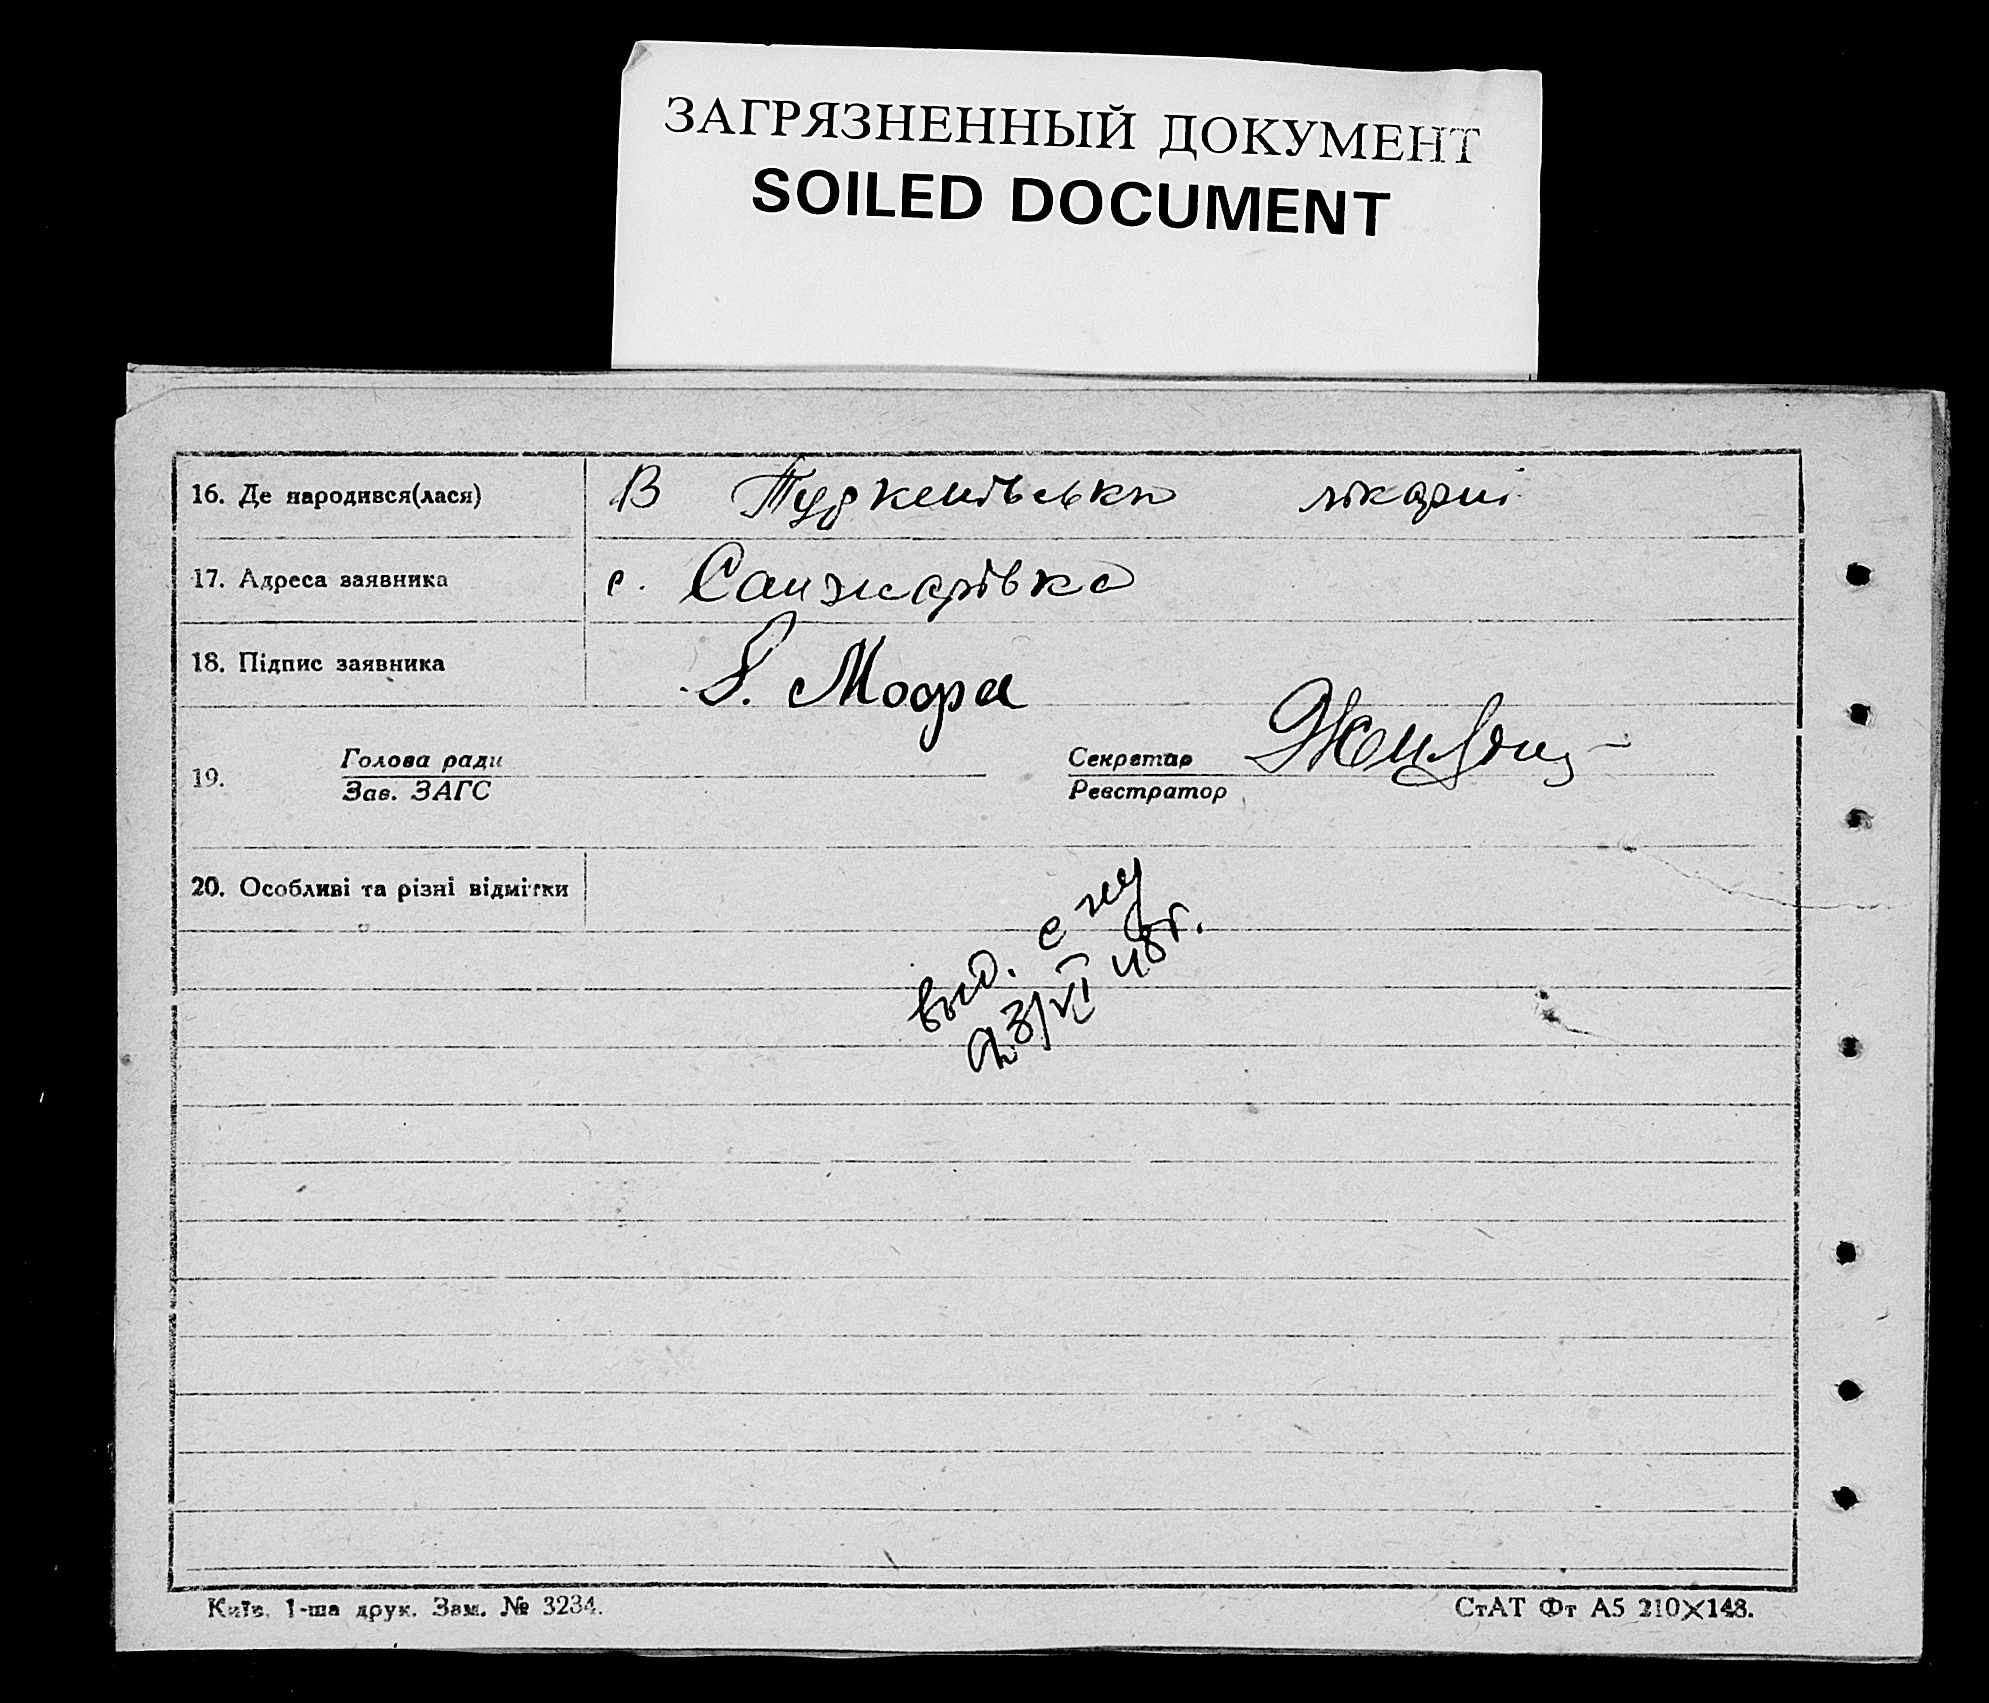 ЗАГРЯЗНЕННЫЙ ДОКУМЕНТ
SOILED DOCUMENT
16. Де народився(лася) В лікарні
17. Адреса заявника с. Санжарівка
18. Підпис заявника
19. Голова ради Секретар
Зав. ЗАГС Реєстратор
20. Особливі та різні відмітки
выд.
23/VI 48г.
Київ, 1-ша друк. Зам. № 3234.
СтАТ Фт А5 210×148.